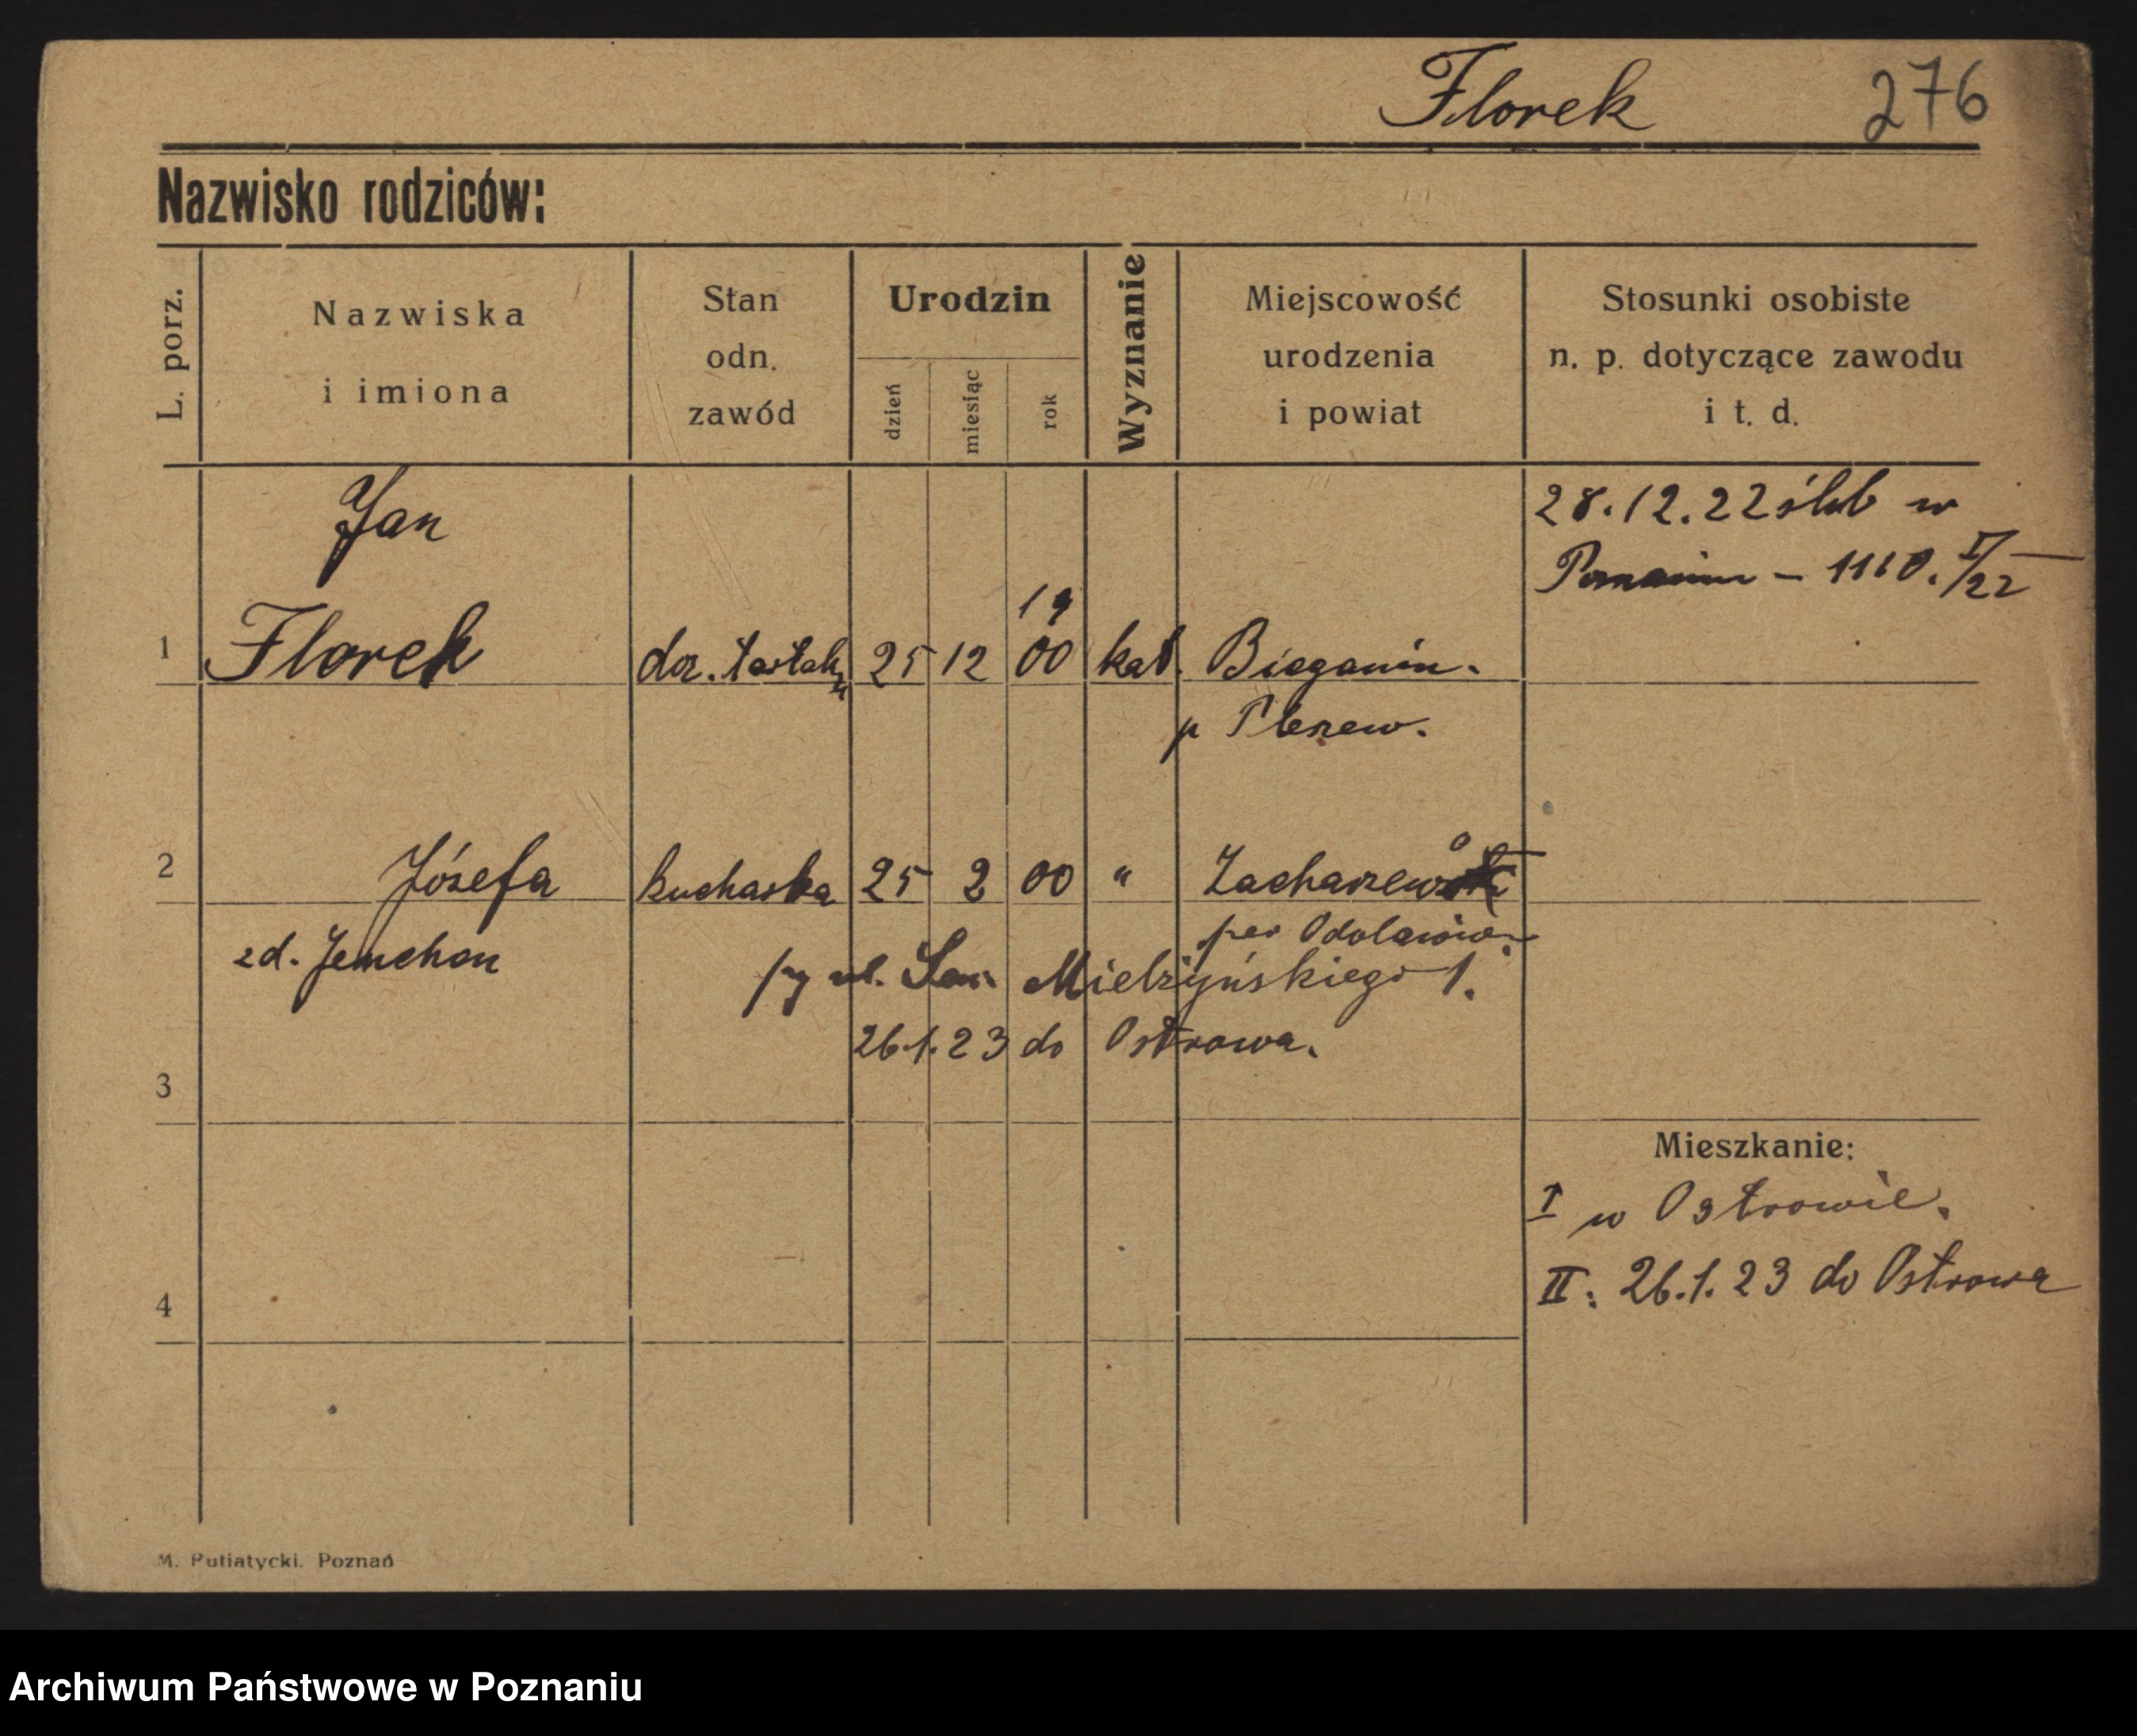 Florek 276
Nazwisko rodziców:
L. porz.
Nazwiska
i imiona
Stan
odn.
zawód
Urodzin
dzień
miesiąc
rok
Wyznanie
Miejscowość
urodzenia
i powiat
Stosunki osobiste
n. p. dotyczące zawodu
i t. d.
28.12.22 ślub w
Poznaniu - 1110. I/22
Jan
19
1 Florek doz. 25 12 00 kat. Bieganin.
p Pleszew.
2 Józefa kucharka 25 2 00 " Zacharzew
pow Odolanów.
zd. Jemchon
ul. Sew. Mielżyńskiego 1.
26.1.23 do Ostrowa.
3
Mieszkanie:
I w Ostrowie.
II. 26.1.23 do Ostrowa
4
M. Putiatycki. Poznań
Archiwum Państwowe w Poznaniu